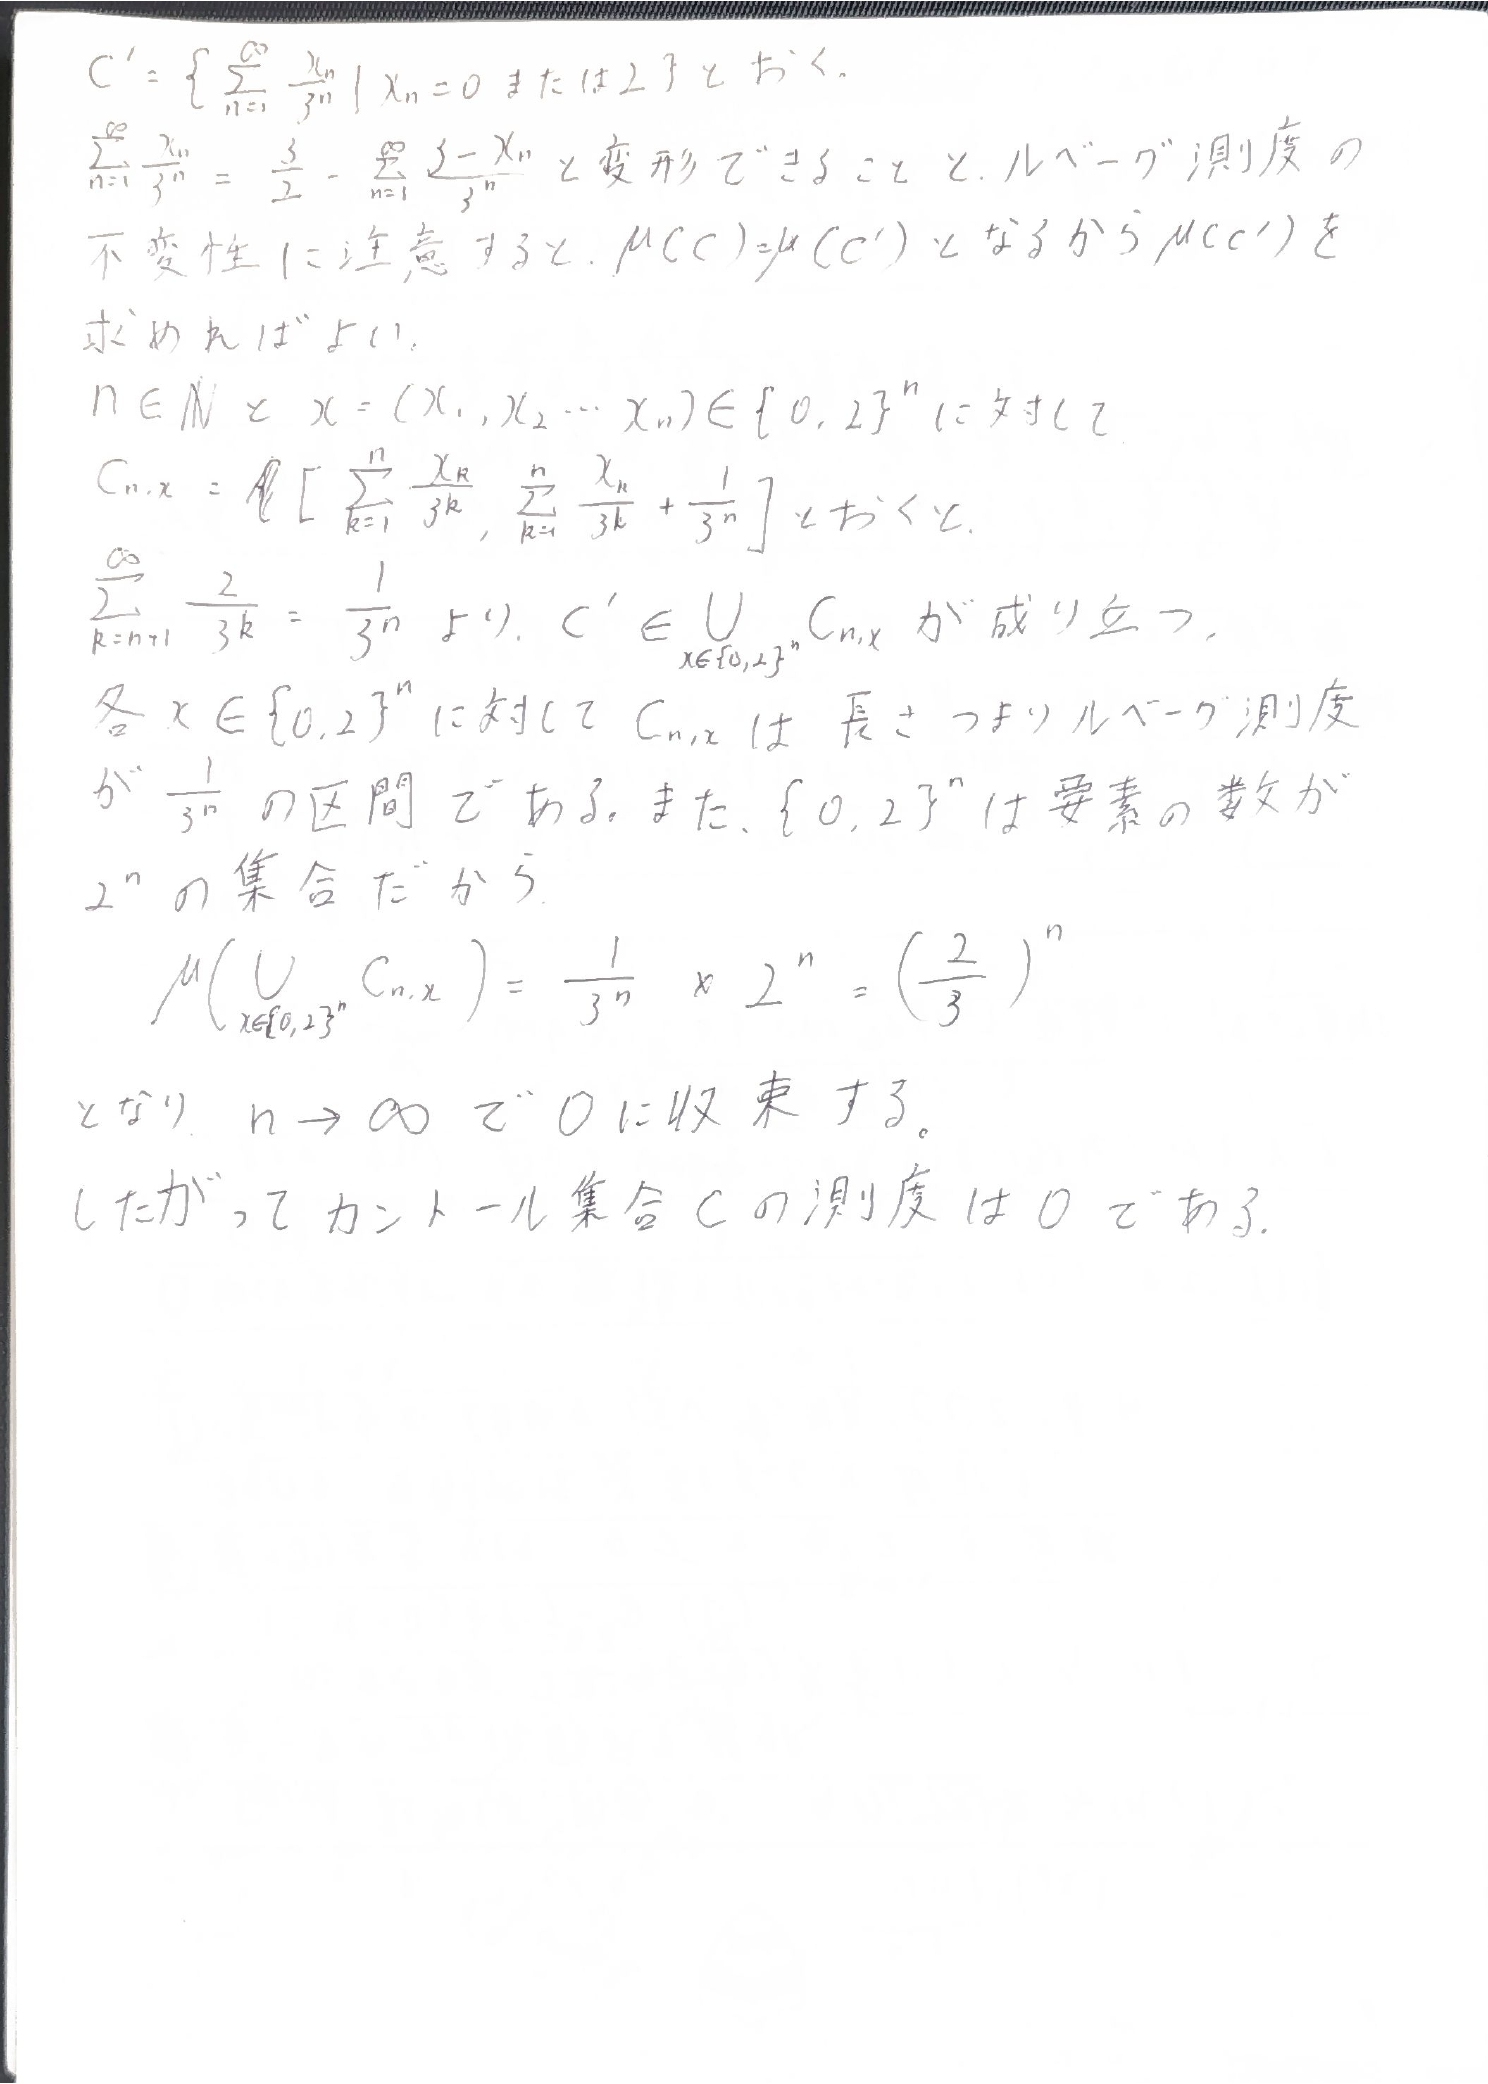 C' = { ∑_{n=1}^{∞} x_n/3^n | x_n = 0 または 2 } とおく.
∑_{n=1}^{∞} x_n/3^n = 3/2 - ∑_{n=1}^{∞} (3-x_n)/3^n と変形できることと、ルベーグ測度の
不変性に注意すると、μ(C)=μ(C')となるからμ(C')を
求めればよい.
n∈ℕ と x=(x_1, x_2 … x_n)∈{0,2}^n に対して
C_{n,x} = [ ∑_{k=1}^{n} x_k/3^k, ∑_{k=1}^{n} x_k/3^k + 1/3^n ] とおくと、
∑_{k=n+1}^{∞} 2/3^k = 1/3^n より、C' ∈ ⋃_{x∈{0,2}^n} C_{n,x} が成り立つ.
各 x∈{0,2}^n に対して C_{n,x} は長さつまりルベーグ測度
が 1/3^n の区間である。また、{0,2}^n は要素の数が
2^n の集合だから
μ( ⋃_{x∈{0,2}^n} C_{n,x} ) = 1/3^n × 2^n = (2/3)^n
となり n→∞ で 0 に収束する。
したがってカントール集合 C の測度は 0 である.